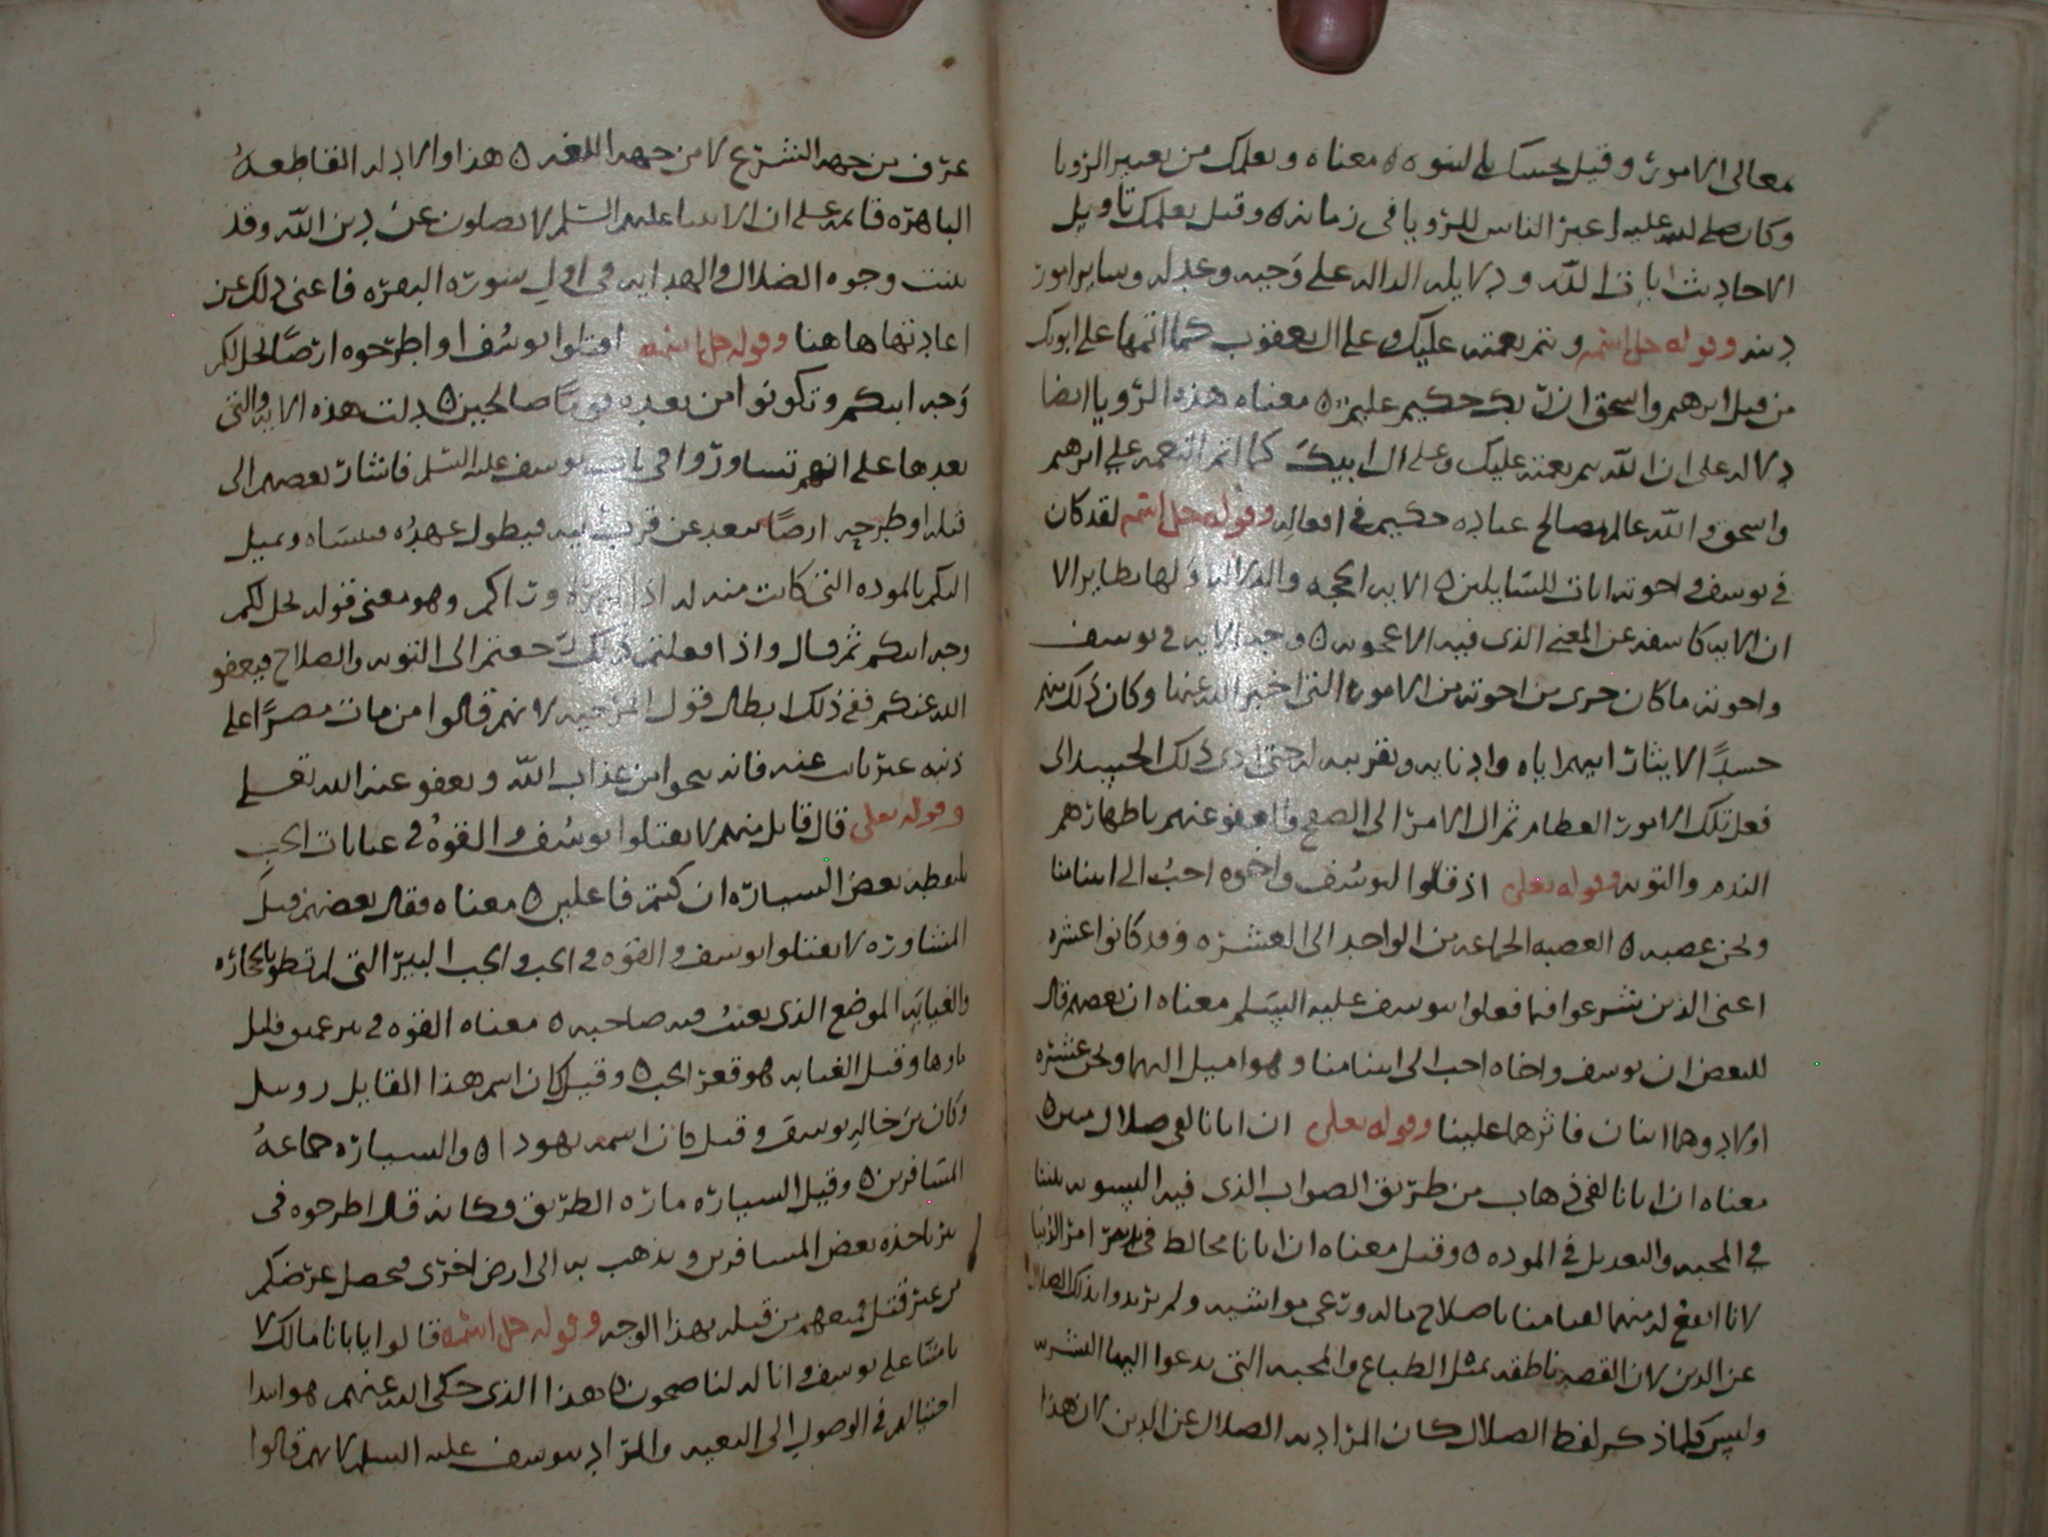 معالى الامور وقيل بحسناك بالنبوه ٥ معناه ويعلمك من تعبير الرويا
وكان صلى الله عليه اعبر الناس للرويا فى زمانه ٥ وقيل يعلمك تاويل
الاحاديث ايات الله ودلايله الداله على توحيده وعدله وساير امور
دينه وقوله جل اسمه ويتم نعمته عليك وعلى ال يعقوب كما اتمها على ابويك
من قبل ابرهيم واسحق ان ربك حكيم عليم ٥ معناه هذه الرويا ايضا
داله على ان الله يتم نعمته عليك وعلى ال ابيك كما اتم النعمه على ابرهيم
واسحق والله عالم بمصالح عباده حكيم فى افعاله وقوله جل اسمه لقد كان
فى يوسف واخوته ايات للسايلين ٥ الايه الحجه والدلاله ولها نظاير الا
ان الايه كاشفه عن المعنى الذى فيه الاعجوبه ٥ وجه الايه فى يوسف
واخوته ما كان جرى من اخوته من الامور التى اخبر الله عنها وكان ذلك منهم
حسدًا لايثار ابيهم اياه وادنايه وتقريبه له حتى ادى ذلك الحسد الى
فعل تلك الامور العظام ثم ال الامر الى الصفح والعفو عنهم باظهارهم
الندم والتوبه وقوله تعلى اذ قالوا ليوسف واخوه احب الى ابينا منا
ونحن عصبه ٥ العصبه الجماعه من الواحد الى العشره وقد كانوا عشره
اعنى الذين شرعوا فيما فعلوا بيوسف عليه السلم معناه ان بعضهم قال
للبعض ان يوسف واخاه احب الى ابينا منا وهو اميل اليهما ونحن عشره
اولاد وهما اثنان فاثرهما علينا وقوله تعلى ان ابانا لفى ضلال مبين ٥
معناه ان ابانا لفى ذهاب من طريق الصواب الذى فيه التسويه بيننا
فى المحبه والتعديل فى الموده ٥ وقيل معناه ان ابانا مخالط فى تدبير امر الدنيا
لانا انفع له منهما لقيامنا باصلاح ماله ورعى مواشيه ولم يريدوا بذلك الضلال
عن الدين لان القصه ناطقه بمثل الطباع والمحبه التى يدعوا اليها البشر
وليس كلما ذكر لفظ الضلال كان المراد به الضلال عن الدين لان هذا
عرف من جهه الشرع لا من جهه اللغه ٥ هذا والادله القاطعه
الباهره قايمه على ان الانبيا عليهم السلم لا يضلون عن دين الله وقد
بينت وجوه الضلال والهدايه فى اول سوره البقره فاغنى ذلك عن
اعادتها هاهنا وقوله جل اسمه اقتلوا يوسف او اطرحوه ارضًا يخل لكم
وجه ابيكم وتكونوا من بعده قومًا صالحين ٥ دلت هذه الايه والتى
بعدها على انهم تشاوروا فى باب يوسف عليه السلم فاشار بعضهم الى
قتله او طرحه ارضًا تبعد عن قرب ابيه فيطول عهده فينساه ويميل
اليكم بالموده التى كانت منه له اذا وراكم وهو معنى قوله يخل لكم
وجه ابيكم ثم قال واذا فعلتم ذلك رجعتم الى التوبه والصلاح فيعفو
الله عنكم ففى ذلك ابطال قول المرجيه لانهم قالوا من مات مصرًا على
ذنبه غير تايب عنه فانه ينجو من عذاب الله ويعفو عنه الله تعلى
وقوله تعلى قال قايل منهم لا تقتلوا يوسف والقوه فى غيابات الجب
يلتقطه بعض السياره ان كنتم فاعلين ٥ معناه فقال بعضهم قبل
المشاوره لا تقتلوا يوسف والقوه فى الجب والجب البير التى لم تطو بالحجاره
والغيابه الموضع الذى يغيب فيه صاحبه ٥ معناه القوه فى بير عميق قليل
ماوها وقيل الغيابه هو قعر الجب ٥ وقيل كان اسم هذا القايل روبيل
وكان بن خاله يوسف وقيل كان اسمه يهودا ٥ والسياره جماعه
المسافرين ٥ وقيل السياره ماره الطريق فكانه قال اطرحوه فى
بير ياخذه بعض المسافرين ويذهب به الى ارض اخرى فيحصل غرضكم
من غير قتل فمنعهم من قتله بهذا الوجه وقوله جل اسمه قالوا يابانا مالك لا
تامنا على يوسف وانا له لناصحون ٥ هذا الذى حكى الله عنهم هو ابتدا
احتيالهم فى الوصول الى البعيه والمراد بيوسف عليه السلم لانهم قالوا